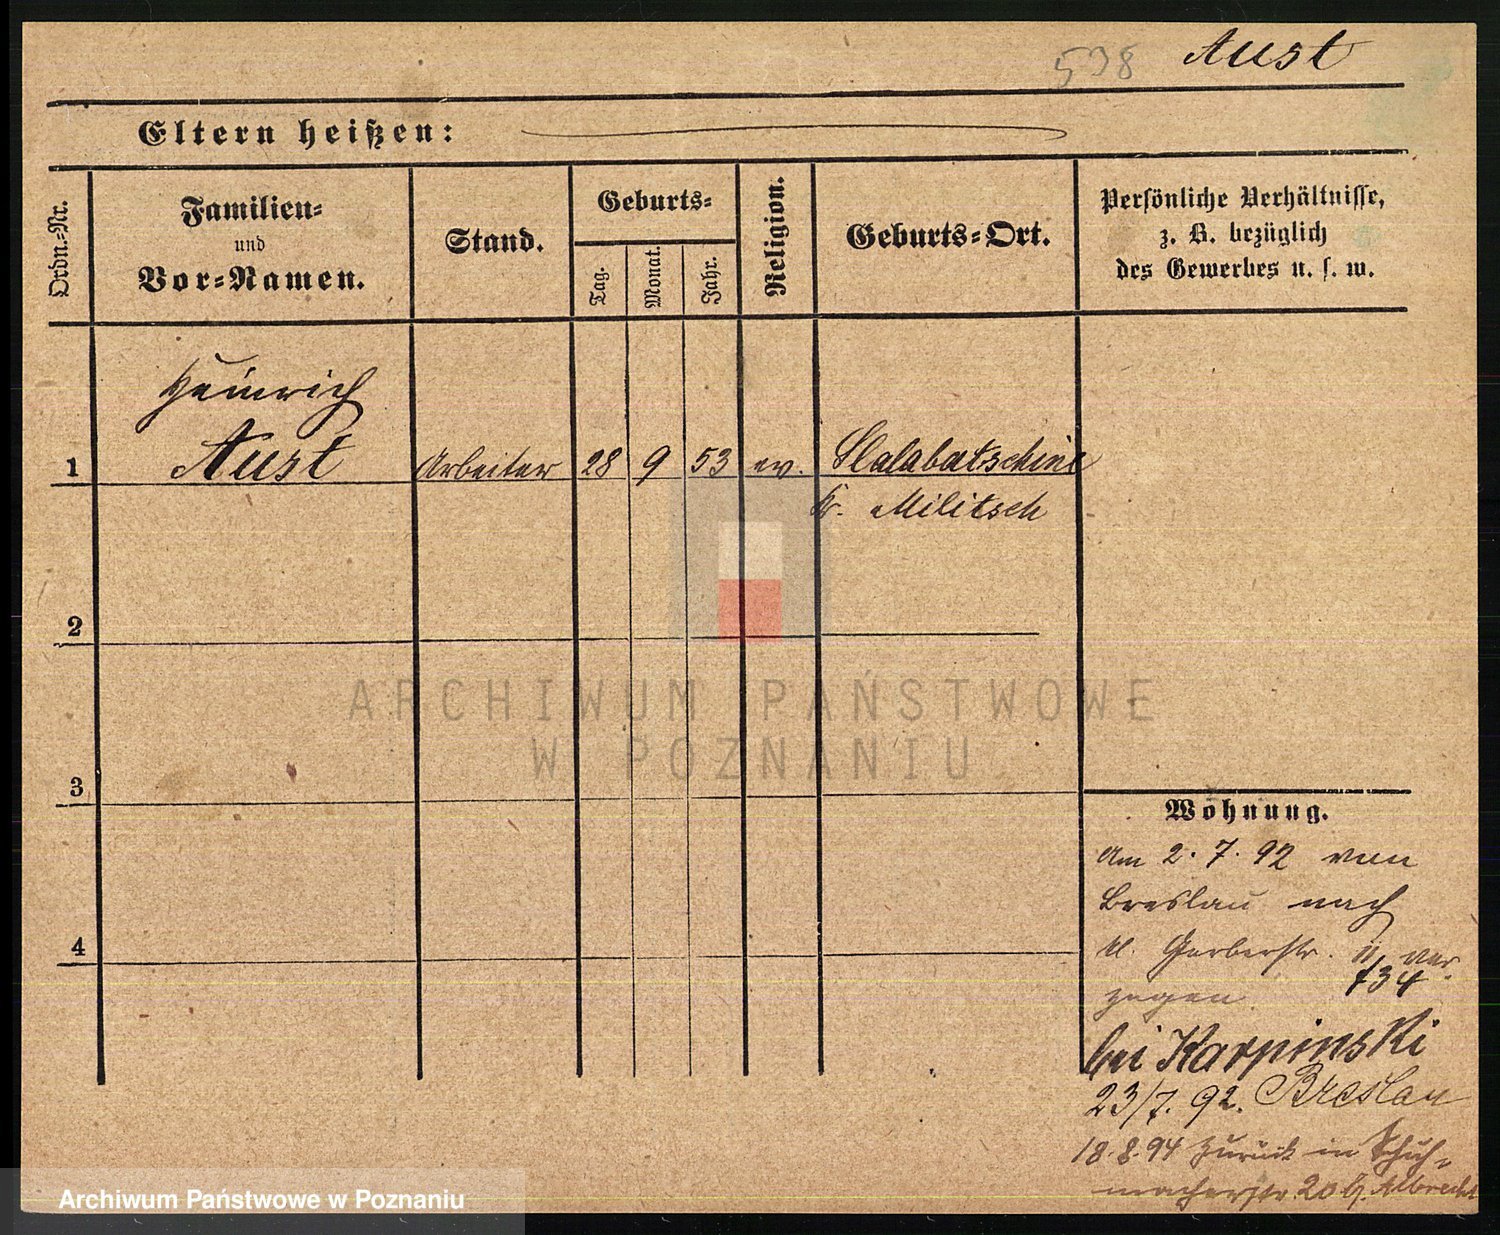 538 Aust
Eltern heißen:
Ordn.-Nr.
Familien-
und
Vor-Namen.
Stand.
Geburts-
Tag.
Monat.
Jahr.
Religion.
Geburts-Ort.
Persönliche Verhältnisse,
z. B. bezüglich
des Gewerbes u. s. w.
Heinrich
1 Aust Arbeiter 28 9 53 ev.
Kr. Militsch
2
3
4
ARCHIWUM PAŃSTWOWE
W POZNANIU
Wohnung.
Am 2. 7. 92 von
Breslau nach
Gerberstr. 11 ver-
zogen 134
bei Karpinski
23/7. 92. Breslau
18.8.94 zurück in Schuh-
macherstr. 20 b. Albrecht
Archiwum Państwowe w Poznaniu